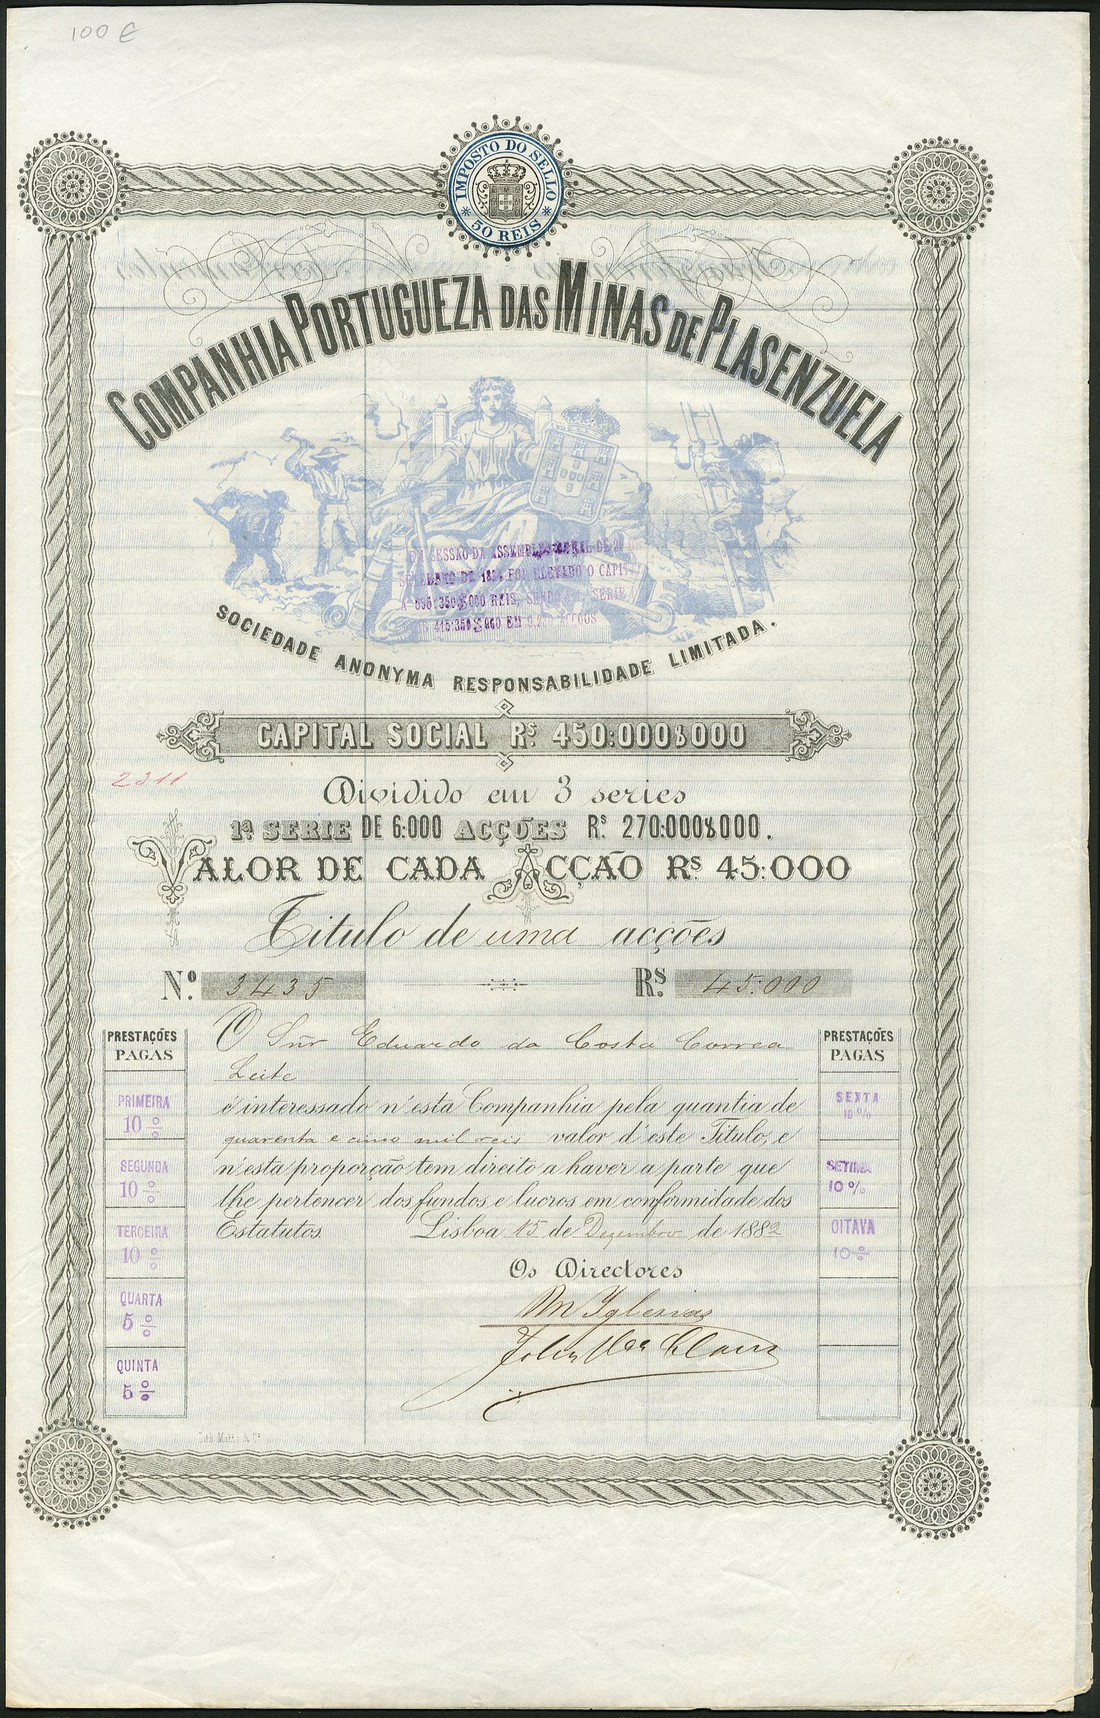 100 €
IMPOSTO DO SELLO
* 50 REIS *
COMPANHIA PORTUGUEZA DAS MINAS DE PLASENZUELA
SESSÃO DA ASSEMBLEA GERAL DE
DE FOI ELEVADO O CAPITAL
REIS, SERIE
EM ACÇÕES
SOCIEDADE ANONYMA RESPONSABILIDADE LIMITADA.
CAPITAL SOCIAL RS. 450:000$000
2311
Dividido em 3 series
1ª SERIE DE 6:000 ACÇÕES RS. 270:000$000.
VALOR DE CADA ACÇÃO RS 45:000
Titulo de uma acções
N.º 3435 RS. 45:000
PRESTAÇÕES PAGAS
PRIMEIRA 10 %
SEGUNDA 10 %
TERCEIRA 10 %
QUARTA 5 %
QUINTA 5 %
O Snr Eduardo da Costa Correa
Leite
é interessado n'esta Companhia pela quantia de
quarenta e cinco mil reis valor d'este Titulo, e
n'esta proporção tem direito a haver a parte que
lhe pertencer dos fundos e lucros em conformidade dos
Estatutos. Lisboa 15 de Dezembro de 1882
Os Directores
Iglesias
PRESTAÇÕES PAGAS
SEXTA 10 %
SETIMA 10 %
OITAVA 10 %